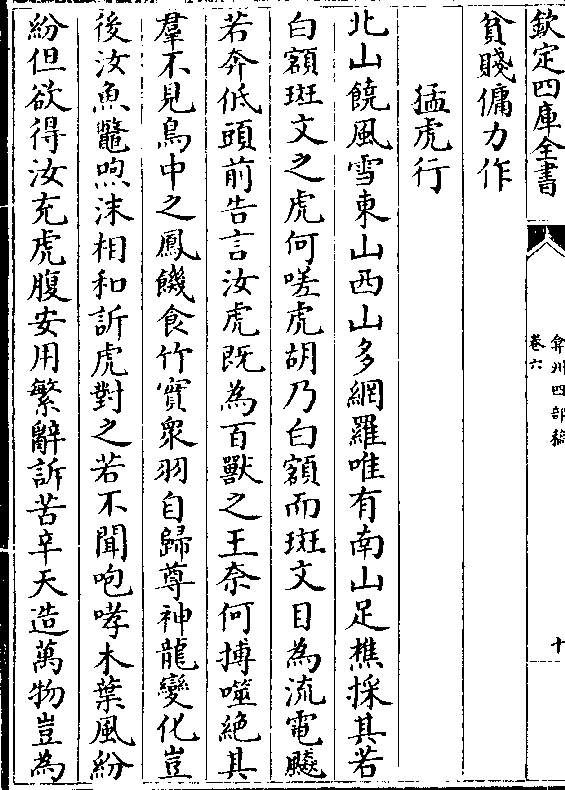 欽定四庫全書
弇州四部稿
卷六
十
貧賤傭力作
猛虎行
北山饒風雪東山西山多網羅唯有南山足樵採其若
白額斑文之虎何嗟虎胡乃白額而斑文目為流電飈
若奔低頭前告言汝虎既為百獸之王奈何搏噬絶其
羣不見鳥中之鳳饑食竹實衆羽自歸尊神龍變化豈
後汝魚鼈喣沫相和訢虎對之若不聞咆哮木葉風紛
紛但欲得汝充虎腹安用繁辭訴苦辛天造萬物豈為